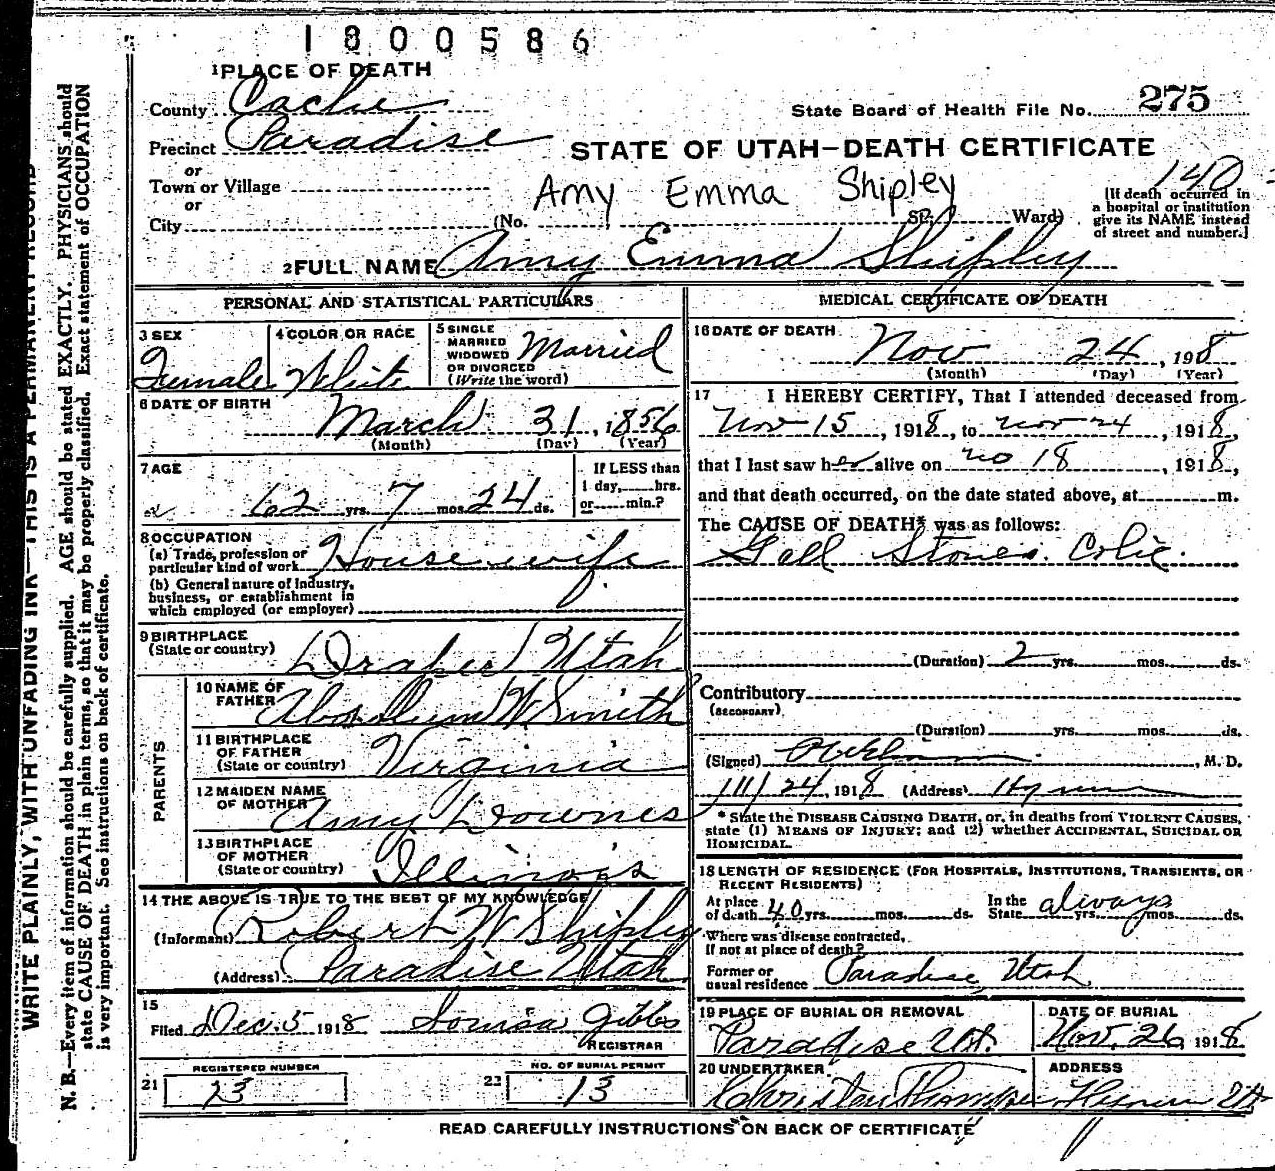 1800586
1 PLACE OF DEATH
County Cache
State Board of Health File No. 275
Precinct Paradise
STATE OF UTAH—DEATH CERTIFICATE
or
Town or Village
or
City
Amy Emma Shipley
(No. St. Ward)
140
[If death occurred in
a hospital or institution
give its NAME instead
of street and number.]
2 FULL NAME Amy Emma Shipley
PERSONAL AND STATISTICAL PARTICULARS
3 SEX
Female
4 COLOR OR RACE
White
5 SINGLE
MARRIED
WIDOWED
OR DIVORCED
(Write the word)
Married
6 DATE OF BIRTH
March 31, 1856
(Month) (Day) (Year)
7 AGE
62 yrs. 7 mos. 24 ds.
If LESS than
1 day, hrs.
or min.?
8 OCCUPATION
(a) Trade, profession or
particular kind of work
House wife
(b) General nature of Industry,
business, or establishment in
which employed (or employer)
9 BIRTHPLACE
(State or country)
Draper Utah
PARENTS
10 NAME OF
FATHER
W Smith
11 BIRTHPLACE
OF FATHER
(State or country)
Virginia
12 MAIDEN NAME
OF MOTHER
Amy Downes
13 BIRTHPLACE
OF MOTHER
(State or country)
Illinois
14 THE ABOVE IS TRUE TO THE BEST OF MY KNOWLEDGE
(Informant) Robert W Shipley
(Address) Paradise Utah
15
Filed Dec. 5 1918 Louisa Gibbs
REGISTRAR
REGISTERED NUMBER
21 23
NO. OF BURIAL PERMIT
22 13
MEDICAL CERTIFICATE OF DEATH
16 DATE OF DEATH
Nov 24, 1918
(Month) (Day) (Year)
17 I HEREBY CERTIFY, That I attended deceased from
Nov 15, 1918, to Nov 24, 1918,
that I last saw her alive on 18, 1918,
and that death occurred, on the date stated above, at m.
The CAUSE OF DEATH* was as follows:
Gall Stones. Colic.
(Duration) 2 yrs. mos. ds.
Contributory
(SECONDARY)
(Duration) yrs. mos. ds.
(Signed) , M. D.
11/24, 1918 (Address) Hyrum
* State the DISEASE CAUSING DEATH, or, in deaths from VIOLENT CAUSES,
state (1) MEANS OF INJURY; and (2) whether ACCIDENTAL, SUICIDAL OR
HOMICIDAL.
18 LENGTH OF RESIDENCE (FOR HOSPITALS, INSTITUTIONS, TRANSIENTS, OR
RECENT RESIDENTS)
At place
of death 40 yrs. mos. ds.
In the
State always yrs. mos. ds.
Where was disease contracted,
If not at place of death?
Former or
usual residence Paradise, Utah
19 PLACE OF BURIAL OR REMOVAL
Paradise Ut.
DATE OF BURIAL
Nov. 26, 1918
20 UNDERTAKER
ADDRESS
Hyrum Ut
READ CAREFULLY INSTRUCTIONS ON BACK OF CERTIFICATE
WRITE PLAINLY, WITH UNFADING INK—THIS IS A PERMANENT RECORD
N. B.—Every item of information should be carefully supplied. AGE should be stated EXACTLY. PHYSICIANS should
state CAUSE OF DEATH in plain terms, so that it may be properly classified. Exact statement of OCCUPATION
is very important. See instructions on back of certificate.